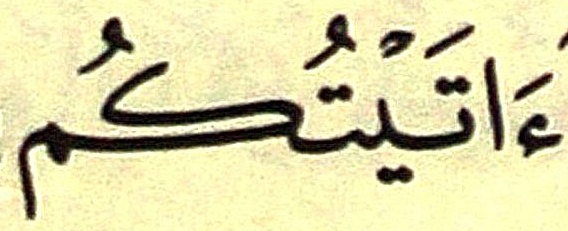 ءَاتَيْتُكُم